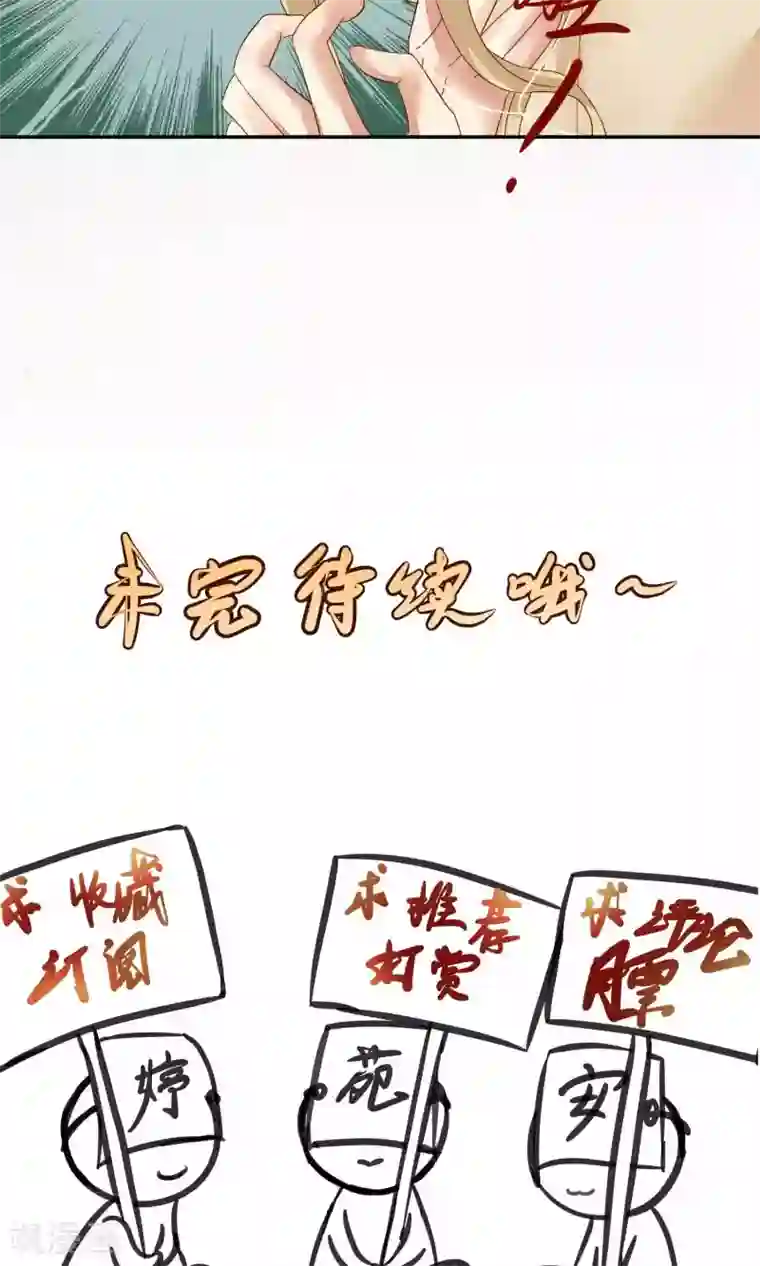 未完待续哦～
求收藏
订阅
求推荐
打赏
求评论
月票
婷
苑
安
飒漫画